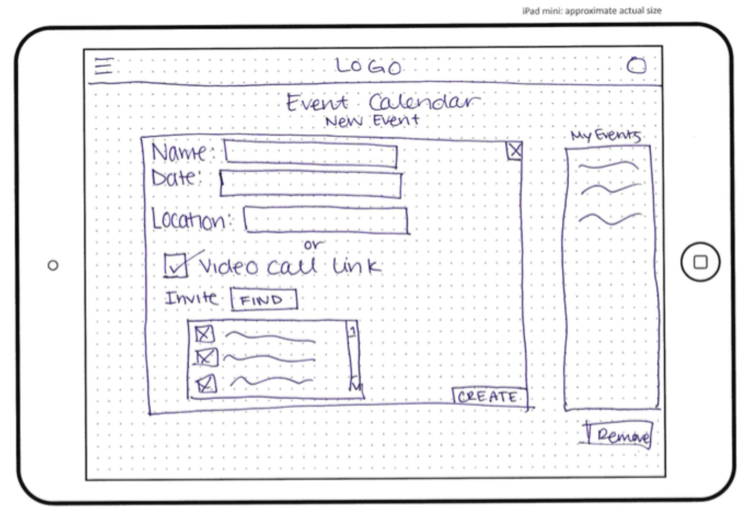 iPad mini: approximate actual size
LOGO
Event Calendar
New Event
My Events
Name:
Date:
Location:
or
Video call link
Invite FIND
CREATE
Remove